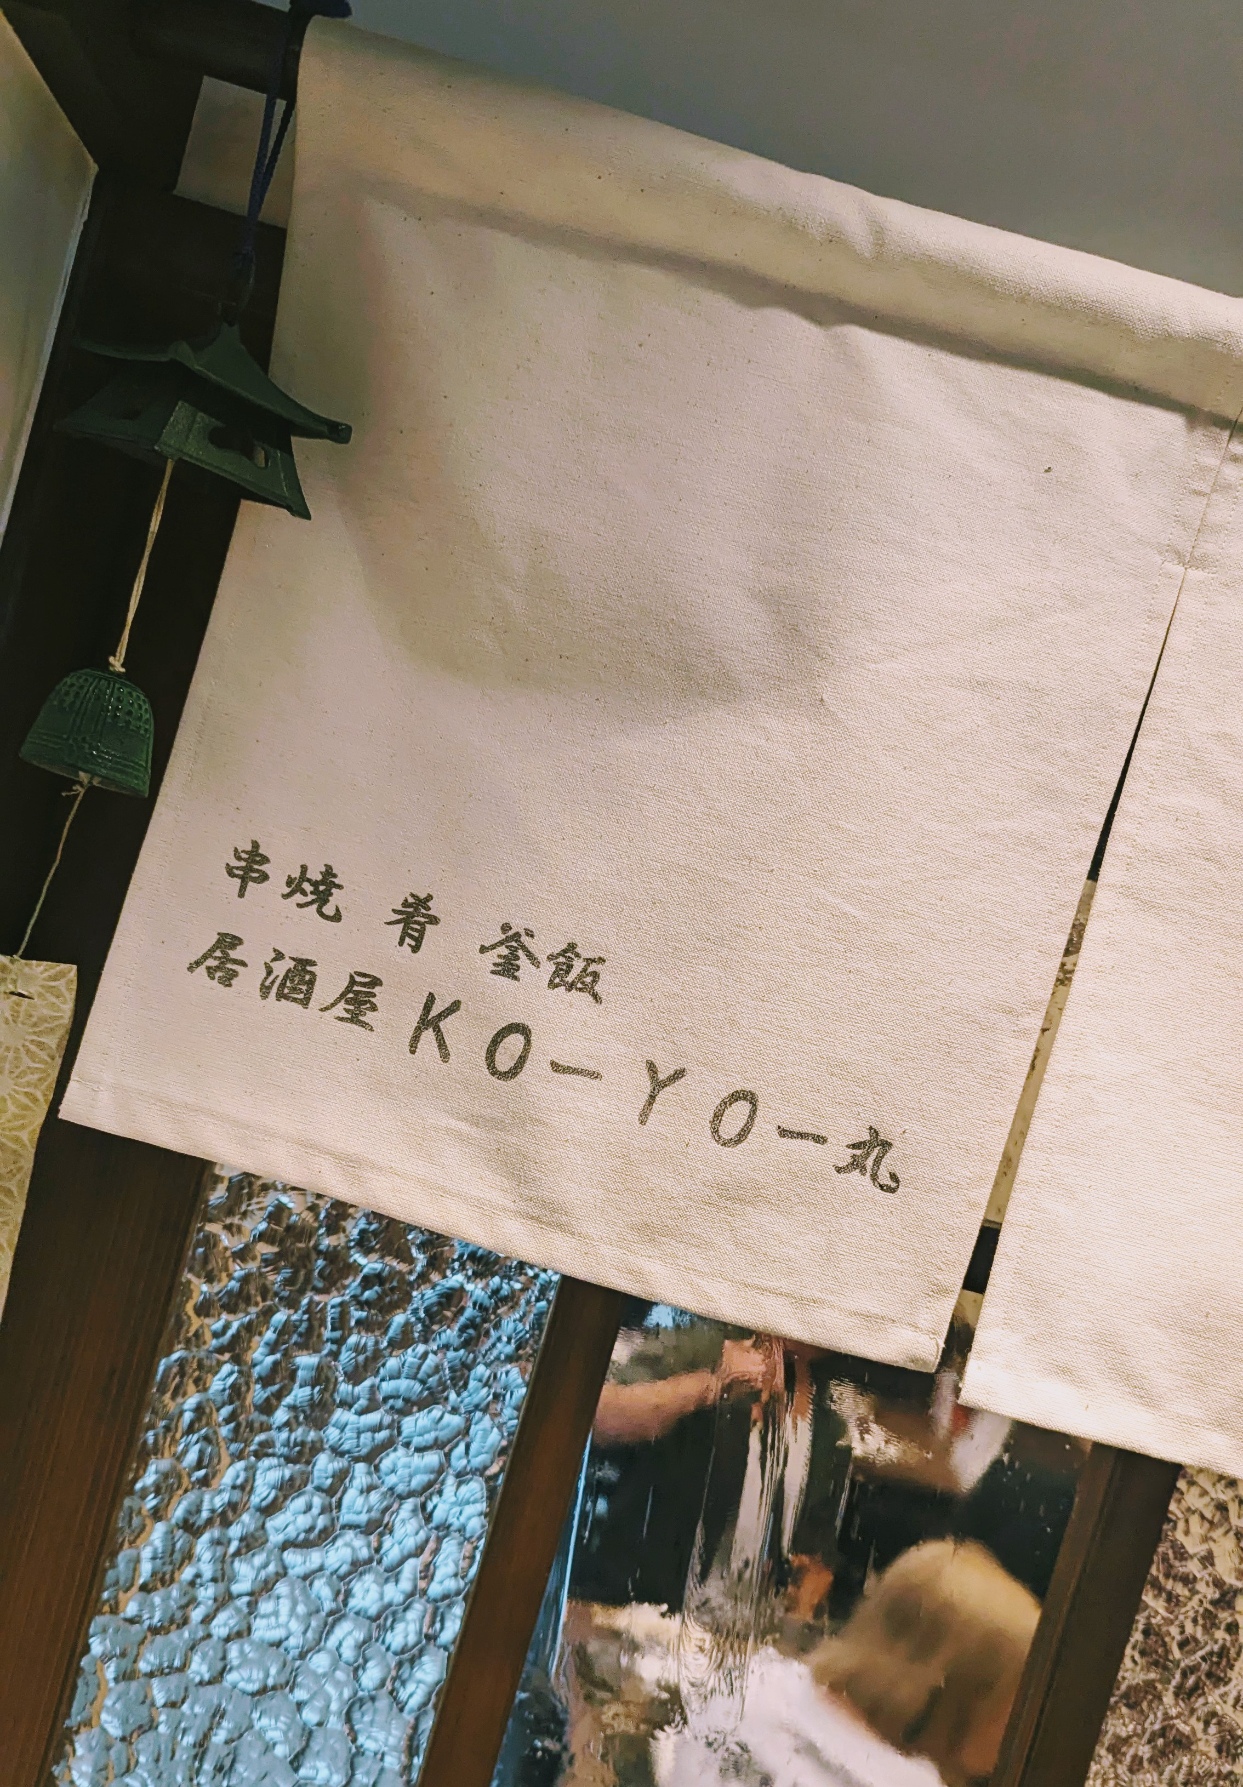 串焼 肴 釜飯
居酒屋 KOーYOー丸